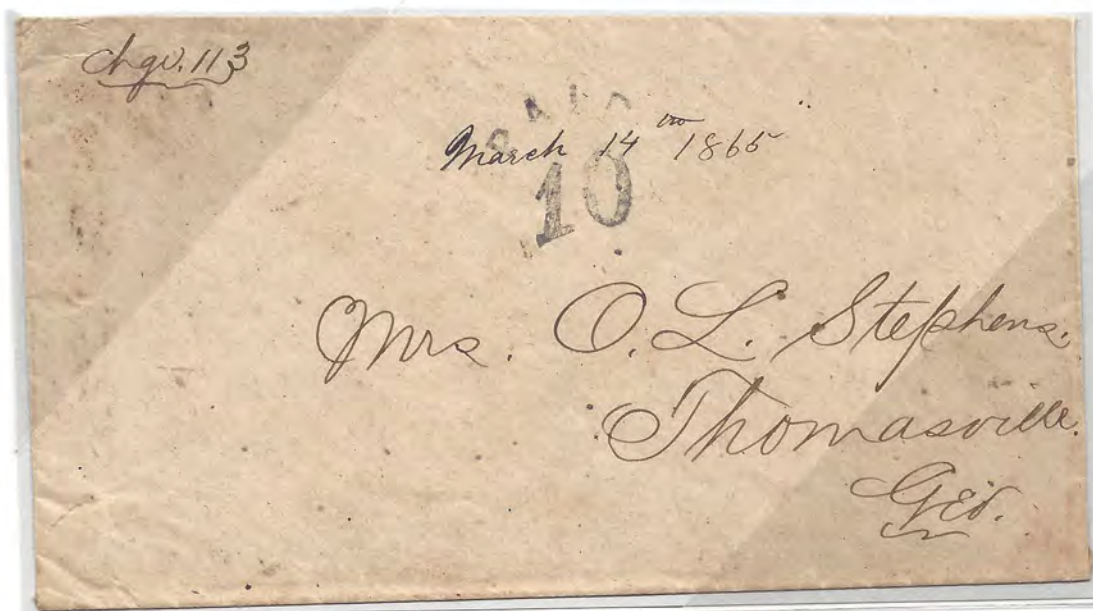 chgd. 113
PAID
March 14th 1865
10
Mrs. O. L. Stephens.
Thomasville.
Geo.